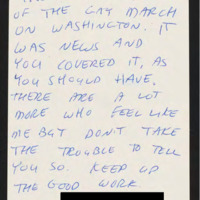 OF THE GAY MARCH
ON WASHINGTON. IT
WAS NEWS AND
YOU COVERED IT, AS
YOU SHOULD HAVE.
THERE ARE A LOT
MORE WHO FEEL LIKE
ME BUT DON'T TAKE
THE TROUBLE TO TELL
YOU SO. KEEP UP
THE GOOD WORK.